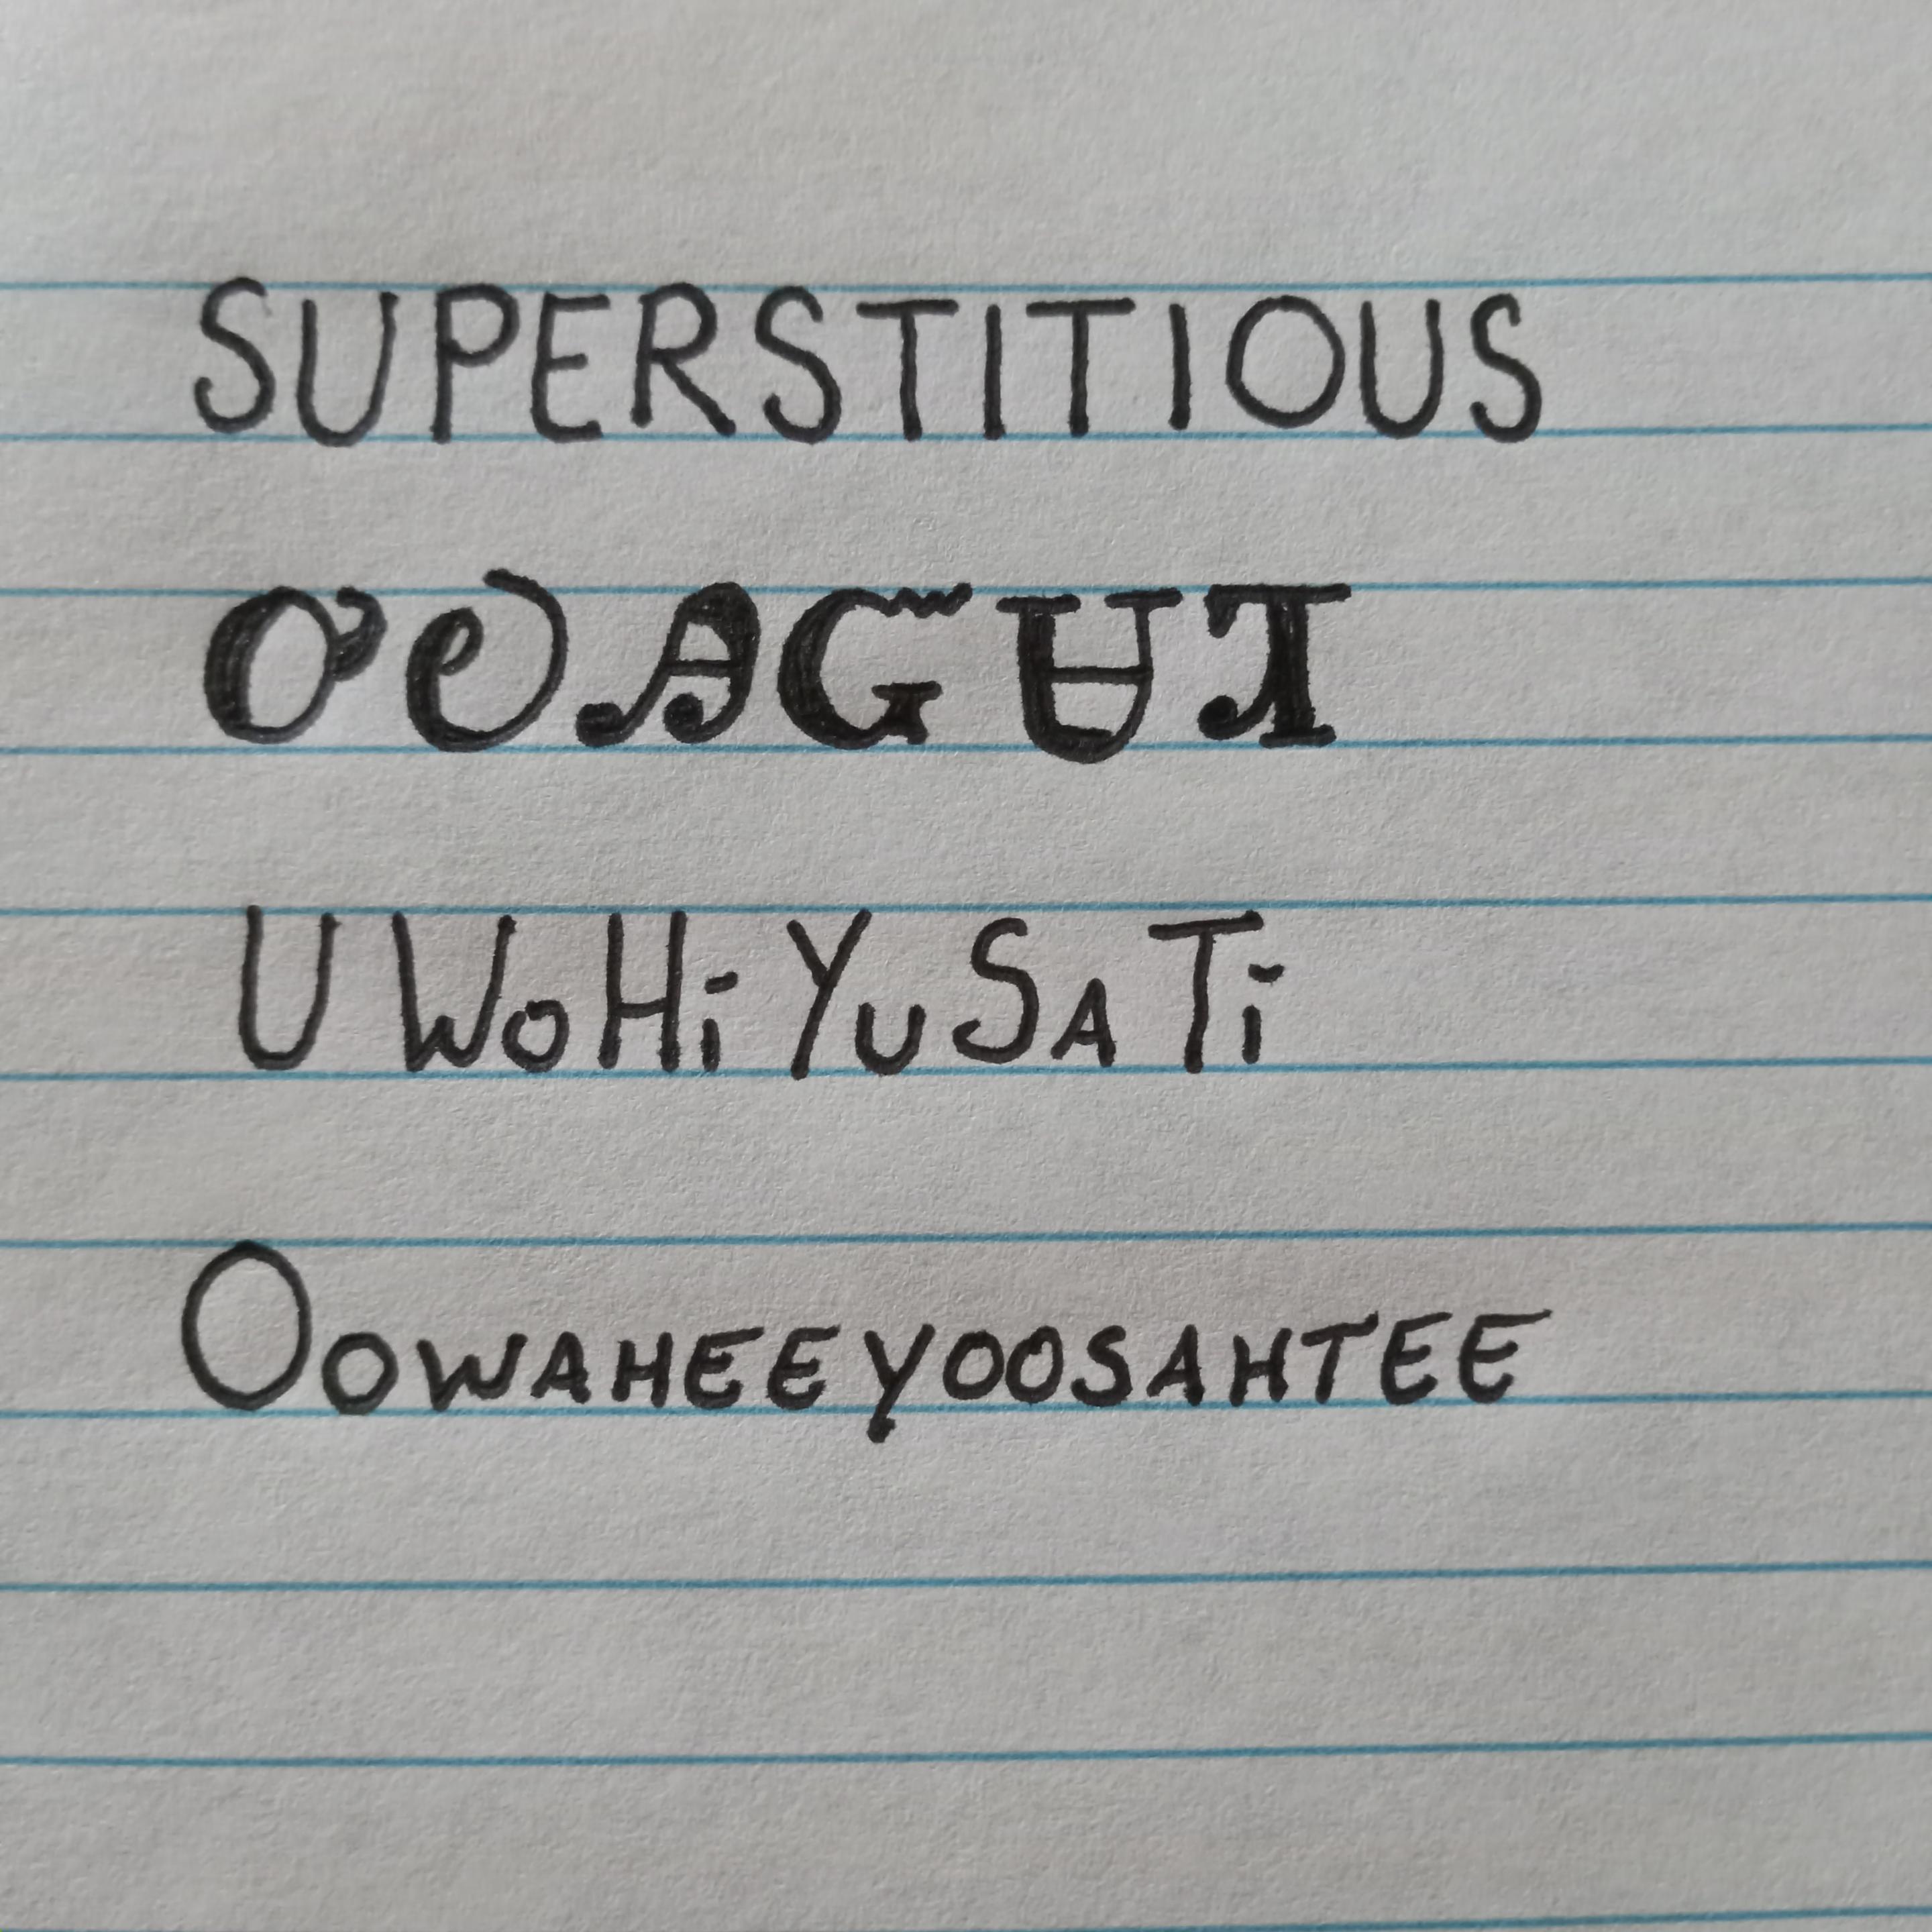 SUPERSTITIOUS
ᎤᏬᎯᏳᏌᏘ
UWoHiYuSATi
OOWAHEEYOOSAHTEE